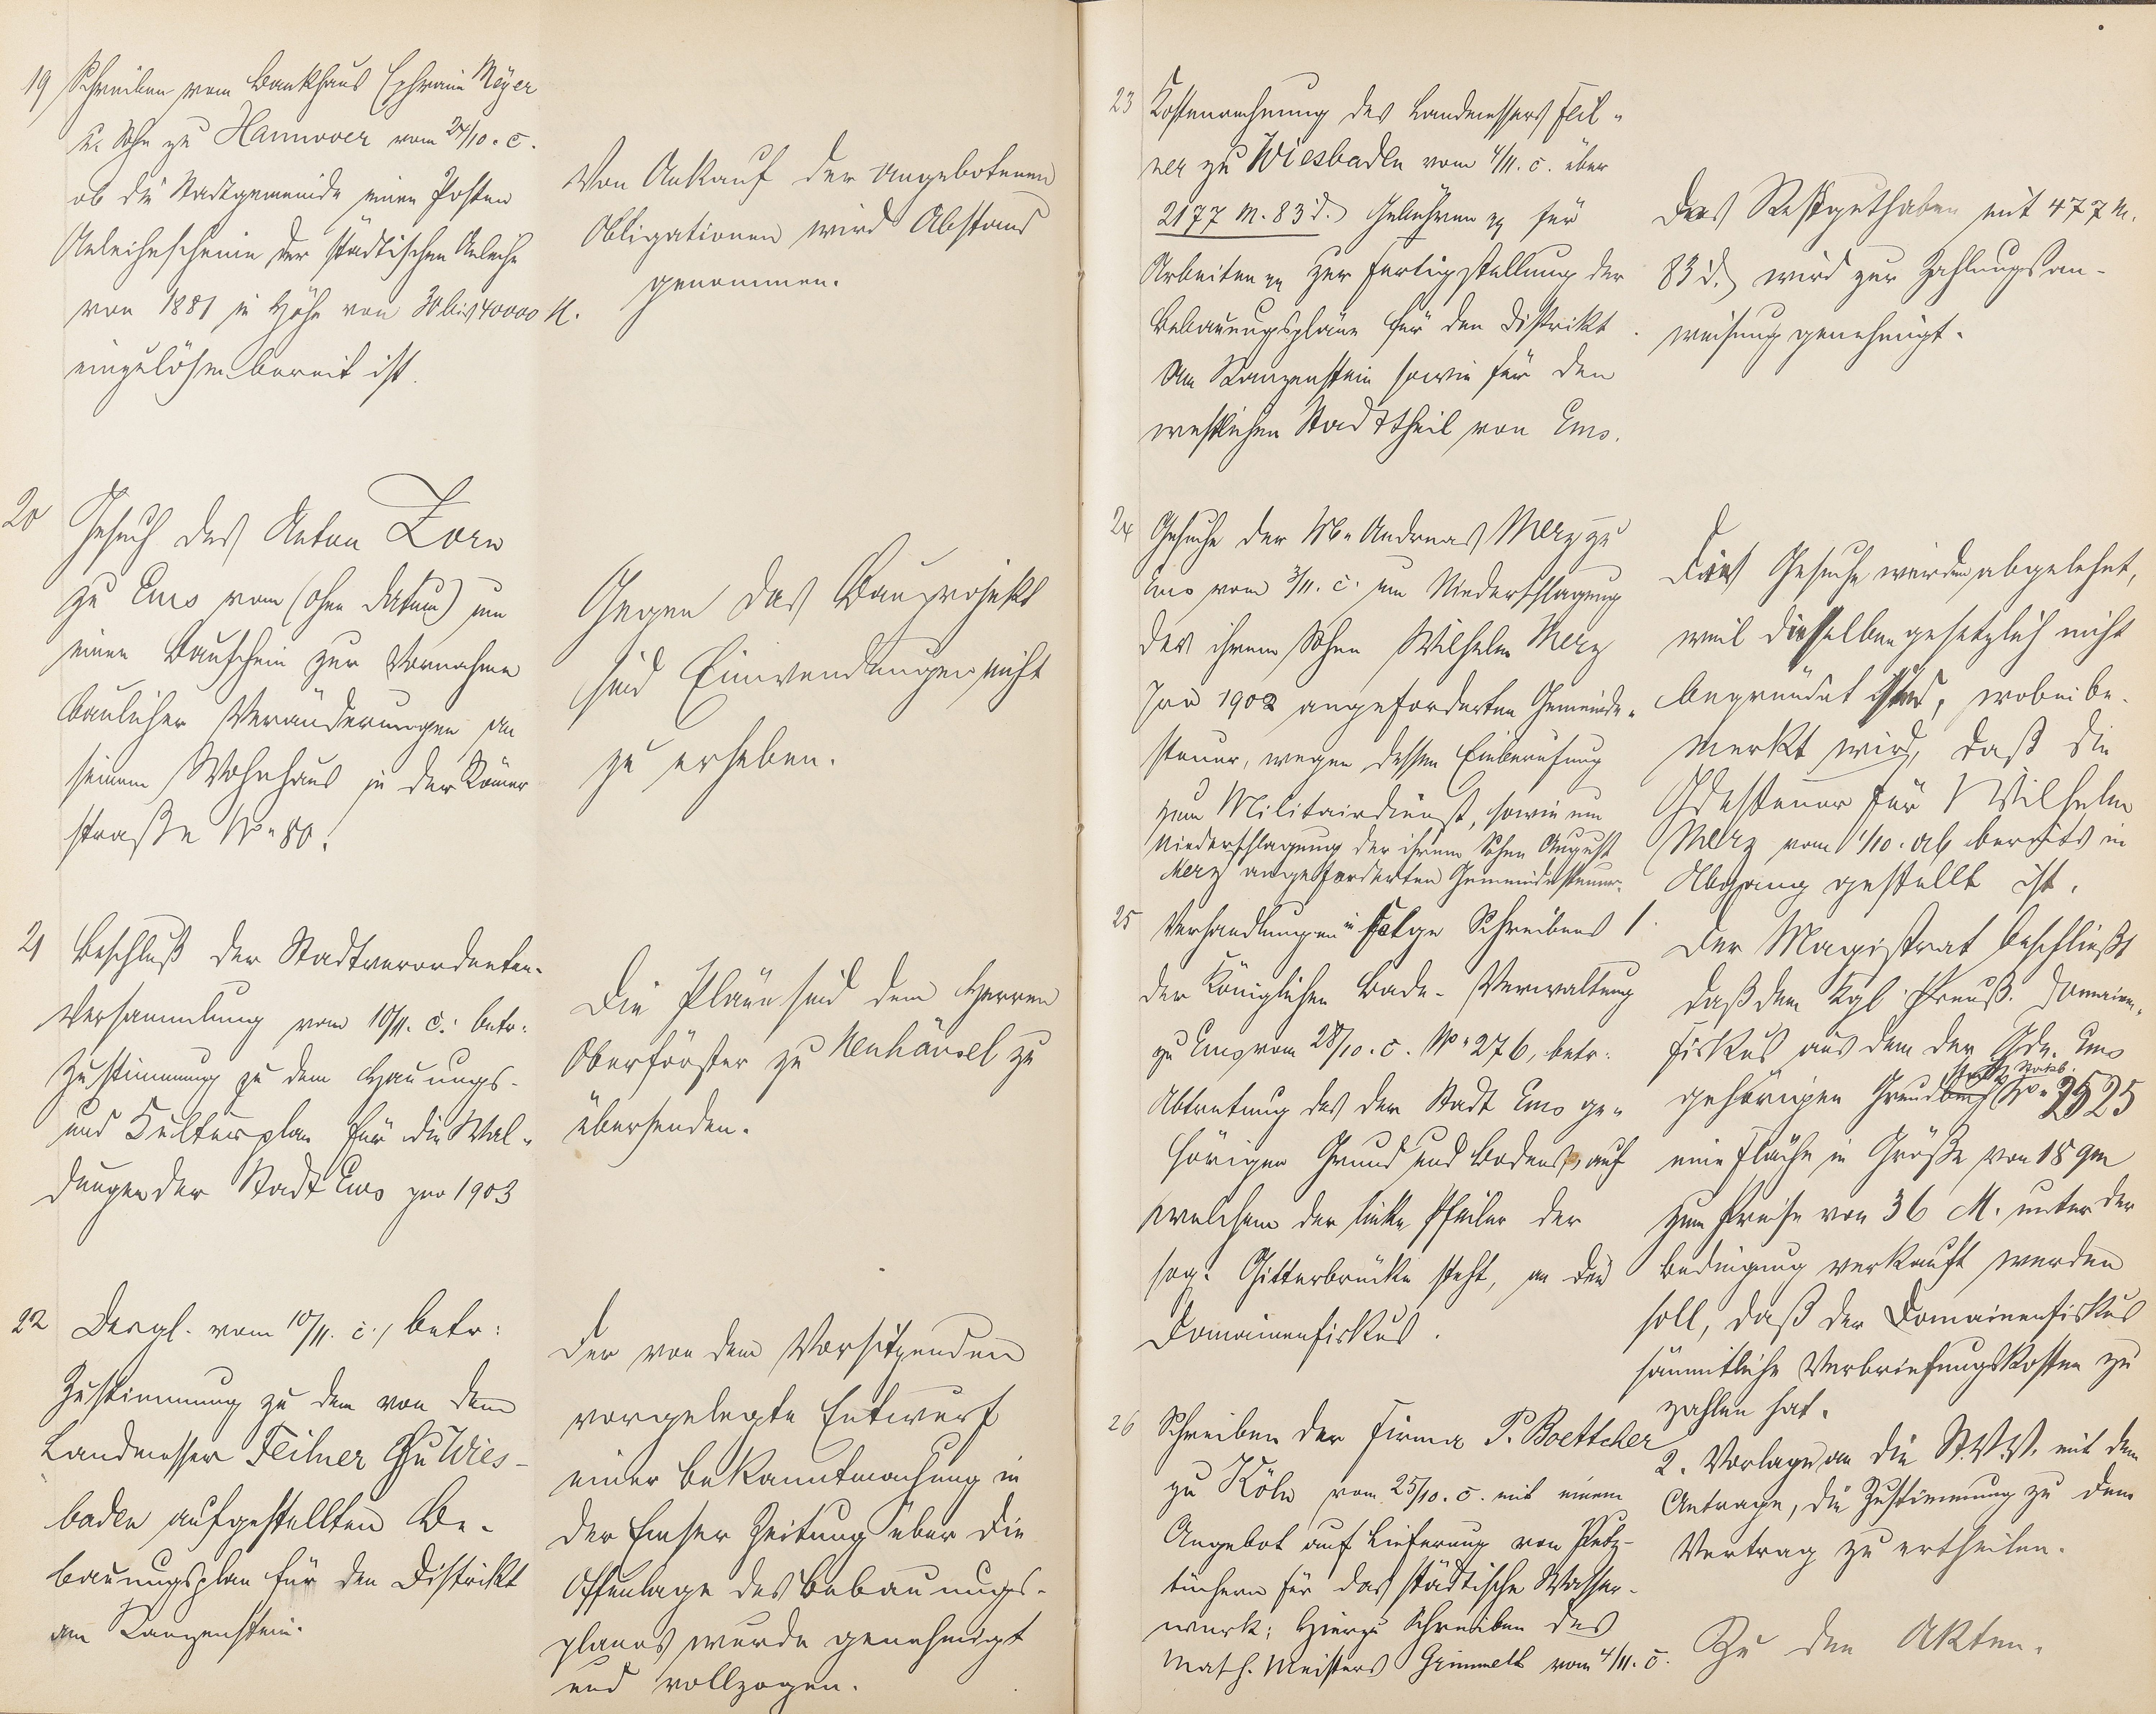 19 Schreiben vom Bankhaus Ephraim Meyer
& Sohn zu Hannover vom 24/10. c.
ob die Stadtgemeinde einen Posten
Anleihescheine der städtischen Anleihe
von 1881 in Höhe von 30 bis 40000 M.
einzulösen bereit ist.
Von Ankauf der angebotenen
Obligationen wird Abstand
genommen.
20 Gesuch des Anton Zorn
zu Ems vom (ohne Datum) um
einen Bauschein zur Vornahme
baulicher Veränderungen an
seinem Wohnhaus in der Römer
straße No 80.
Gegen das Bauprojekt
sind Einwendungen nicht
zu erheben.
21 Beschluß der Stadtverordneten-
Versammlung vom 10/11. c. betr:
Zustimmung zu dem Hauungs-
und Kulturplan für die Wal-
dungen der Stadt Ems pro 1903
Die Pläne sind dem Herren
Oberförster zu Neuhäusel zu
übersenden.
22 Dergl. vom 10/11. c., betr:
Zustimmung zu dem von dem
Landmesser Feilner zu Wies-
baden aufgestellten Be-
bauungsplan für den Distrikt
am Kanzenstein.
Der von dem Vorsitzenden
vorgelegte Entwurf
einer Bekanntmachung in
der Emser Zeitung über die
Offenlage des Bebauungs-
planes wurde genehmigt
und vollzogen.
23 Kostenrechnung des Landmessers Feil-
ner zu Wiesbaden vom 4/11. c. über
2177 M. 83 d. Gebühren für
Arbeiten zur Fertigstellung der
Bebauungspläne für den Distrikt
Am Kanzenstein sowie für den
westlichen Stadttheil von Ems.
Das Restguthaben mit 477 M.
83 d. wird zur Zahlungsan-
weisung genehmigt.
24 Gesuche der Ww. Andreas Merz zu
Ems vom 3/11. c. um Niederschlagung
der ihrem Sohne Wilhelm Merz
pro 1902 angeforderten Gemeinde-
steuer, wegen dessen Einberufung
zum Militairdienst, sowie um
Niederschlagung der ihrem Sohne August
Merz angeforderten Gemeindesteuer.
Die Gesuche werden abgelehnt,
weil dieselben gesetzlich nicht
begründet sind, wobei be-
merkt wird, daß die
Gdesteuer für Wilhelm
Merz vom 1/10. ab bereits in
Abgang gestellt ist.
25 Verhandlungen in Folge Schreibens
der Königlichen Bade-Verwaltung
zu Ems vom 28/10. c. No 276, betr:
Abtretung des der Stadt Ems ge-
hörigen Grund und Bodens, auf
welchem der linke Pfeiler der
sog. Gitterbrücke steht, an den
Domainenfiskus.
1. Der Magistrat beschließt
daß dem Kgl. Preuß. Domainen-
fiskus aus dem der Gde. Ems
gehörigen Grundbuch No 2525
eine Fläche in Größe von 18 qm
zum Preise von 36 M. unter der
Bedingung verkauft werden
soll, daß der Domainenfiskus
sämmtliche Verbriefungskosten zu
zahlen hat.
2. Vorlage an die St.V.V. mit dem
Antrage, die Zustimmung zu dem
Vertrag zu ertheilen.
26 Schreiben der Firma P. Boettcher
zu Köln vom 25/10. c. mit einem
Angebot auf Lieferung von Putz-
tüchern für das städtische Wasser-
werk; Hierzu Schreiben des
Masch. Meisters Grimmell vom 4/11. c.
Zu den Akten.